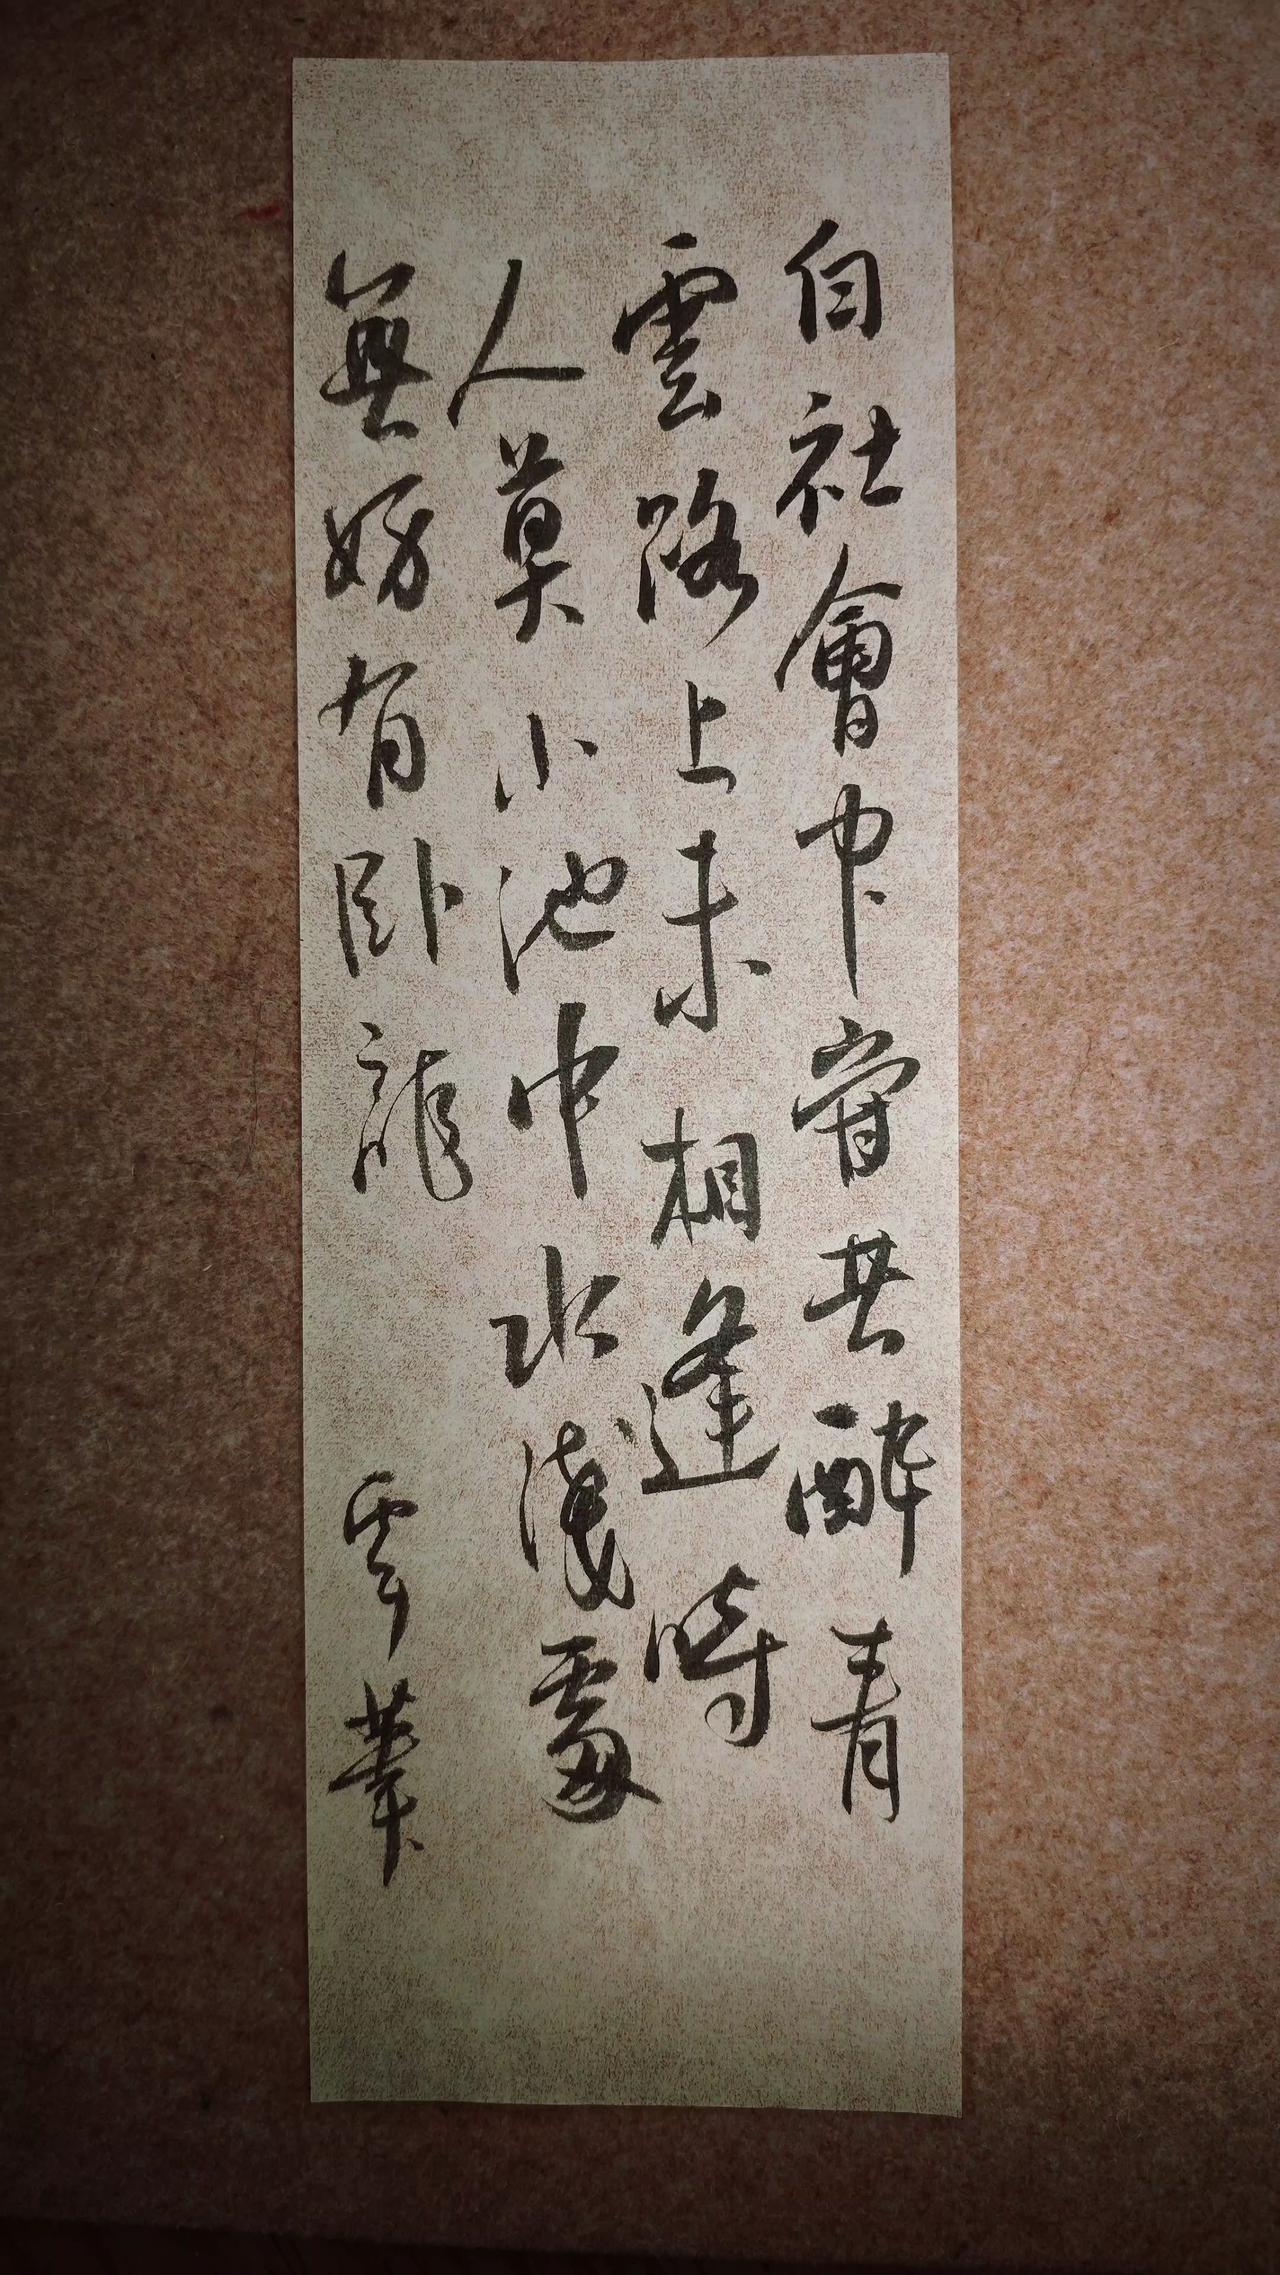 白社會中嘗共醉青
雲路上未相逢時
人莫小池中水淺處
無妨有臥龍 雲華